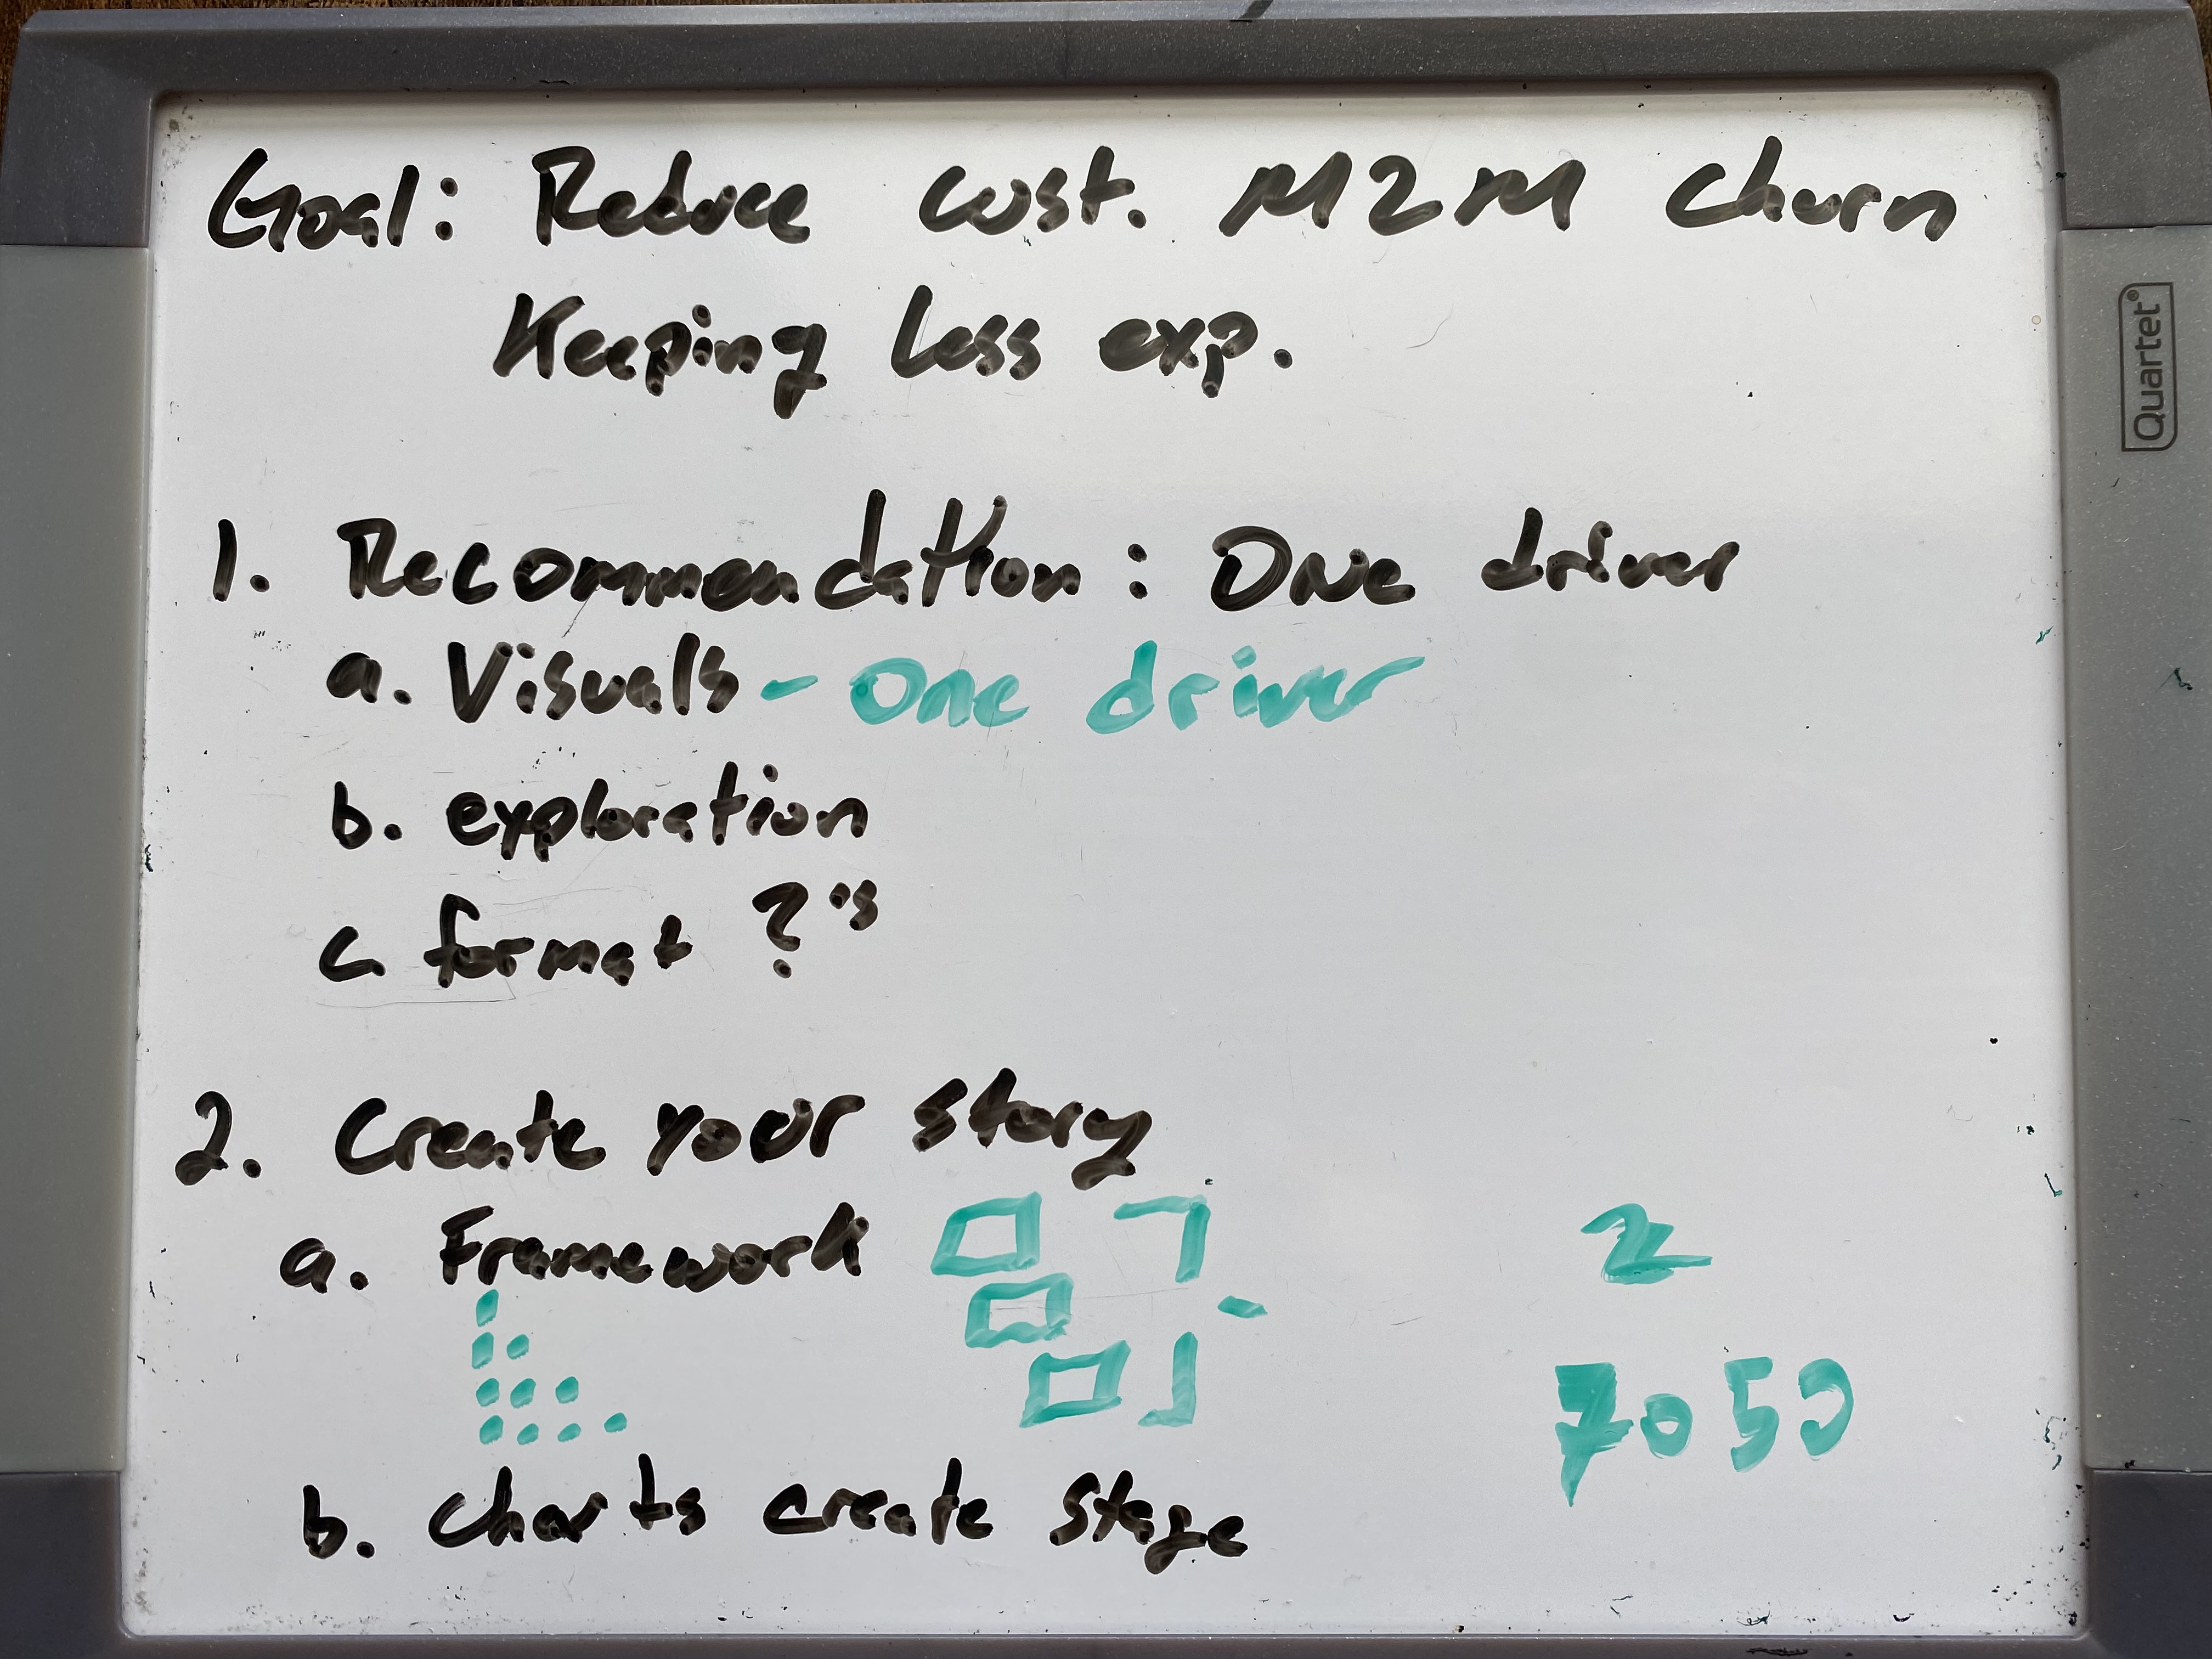 Goal: Reduce cust. M2M churn
Keeping less exp.
1. Recommendation: One driver
a. Visuals - One driver
b. exploration
c. format ?'s
2. Create your story
a. Framework
2
7050
b. Charts create stage
Quartet®